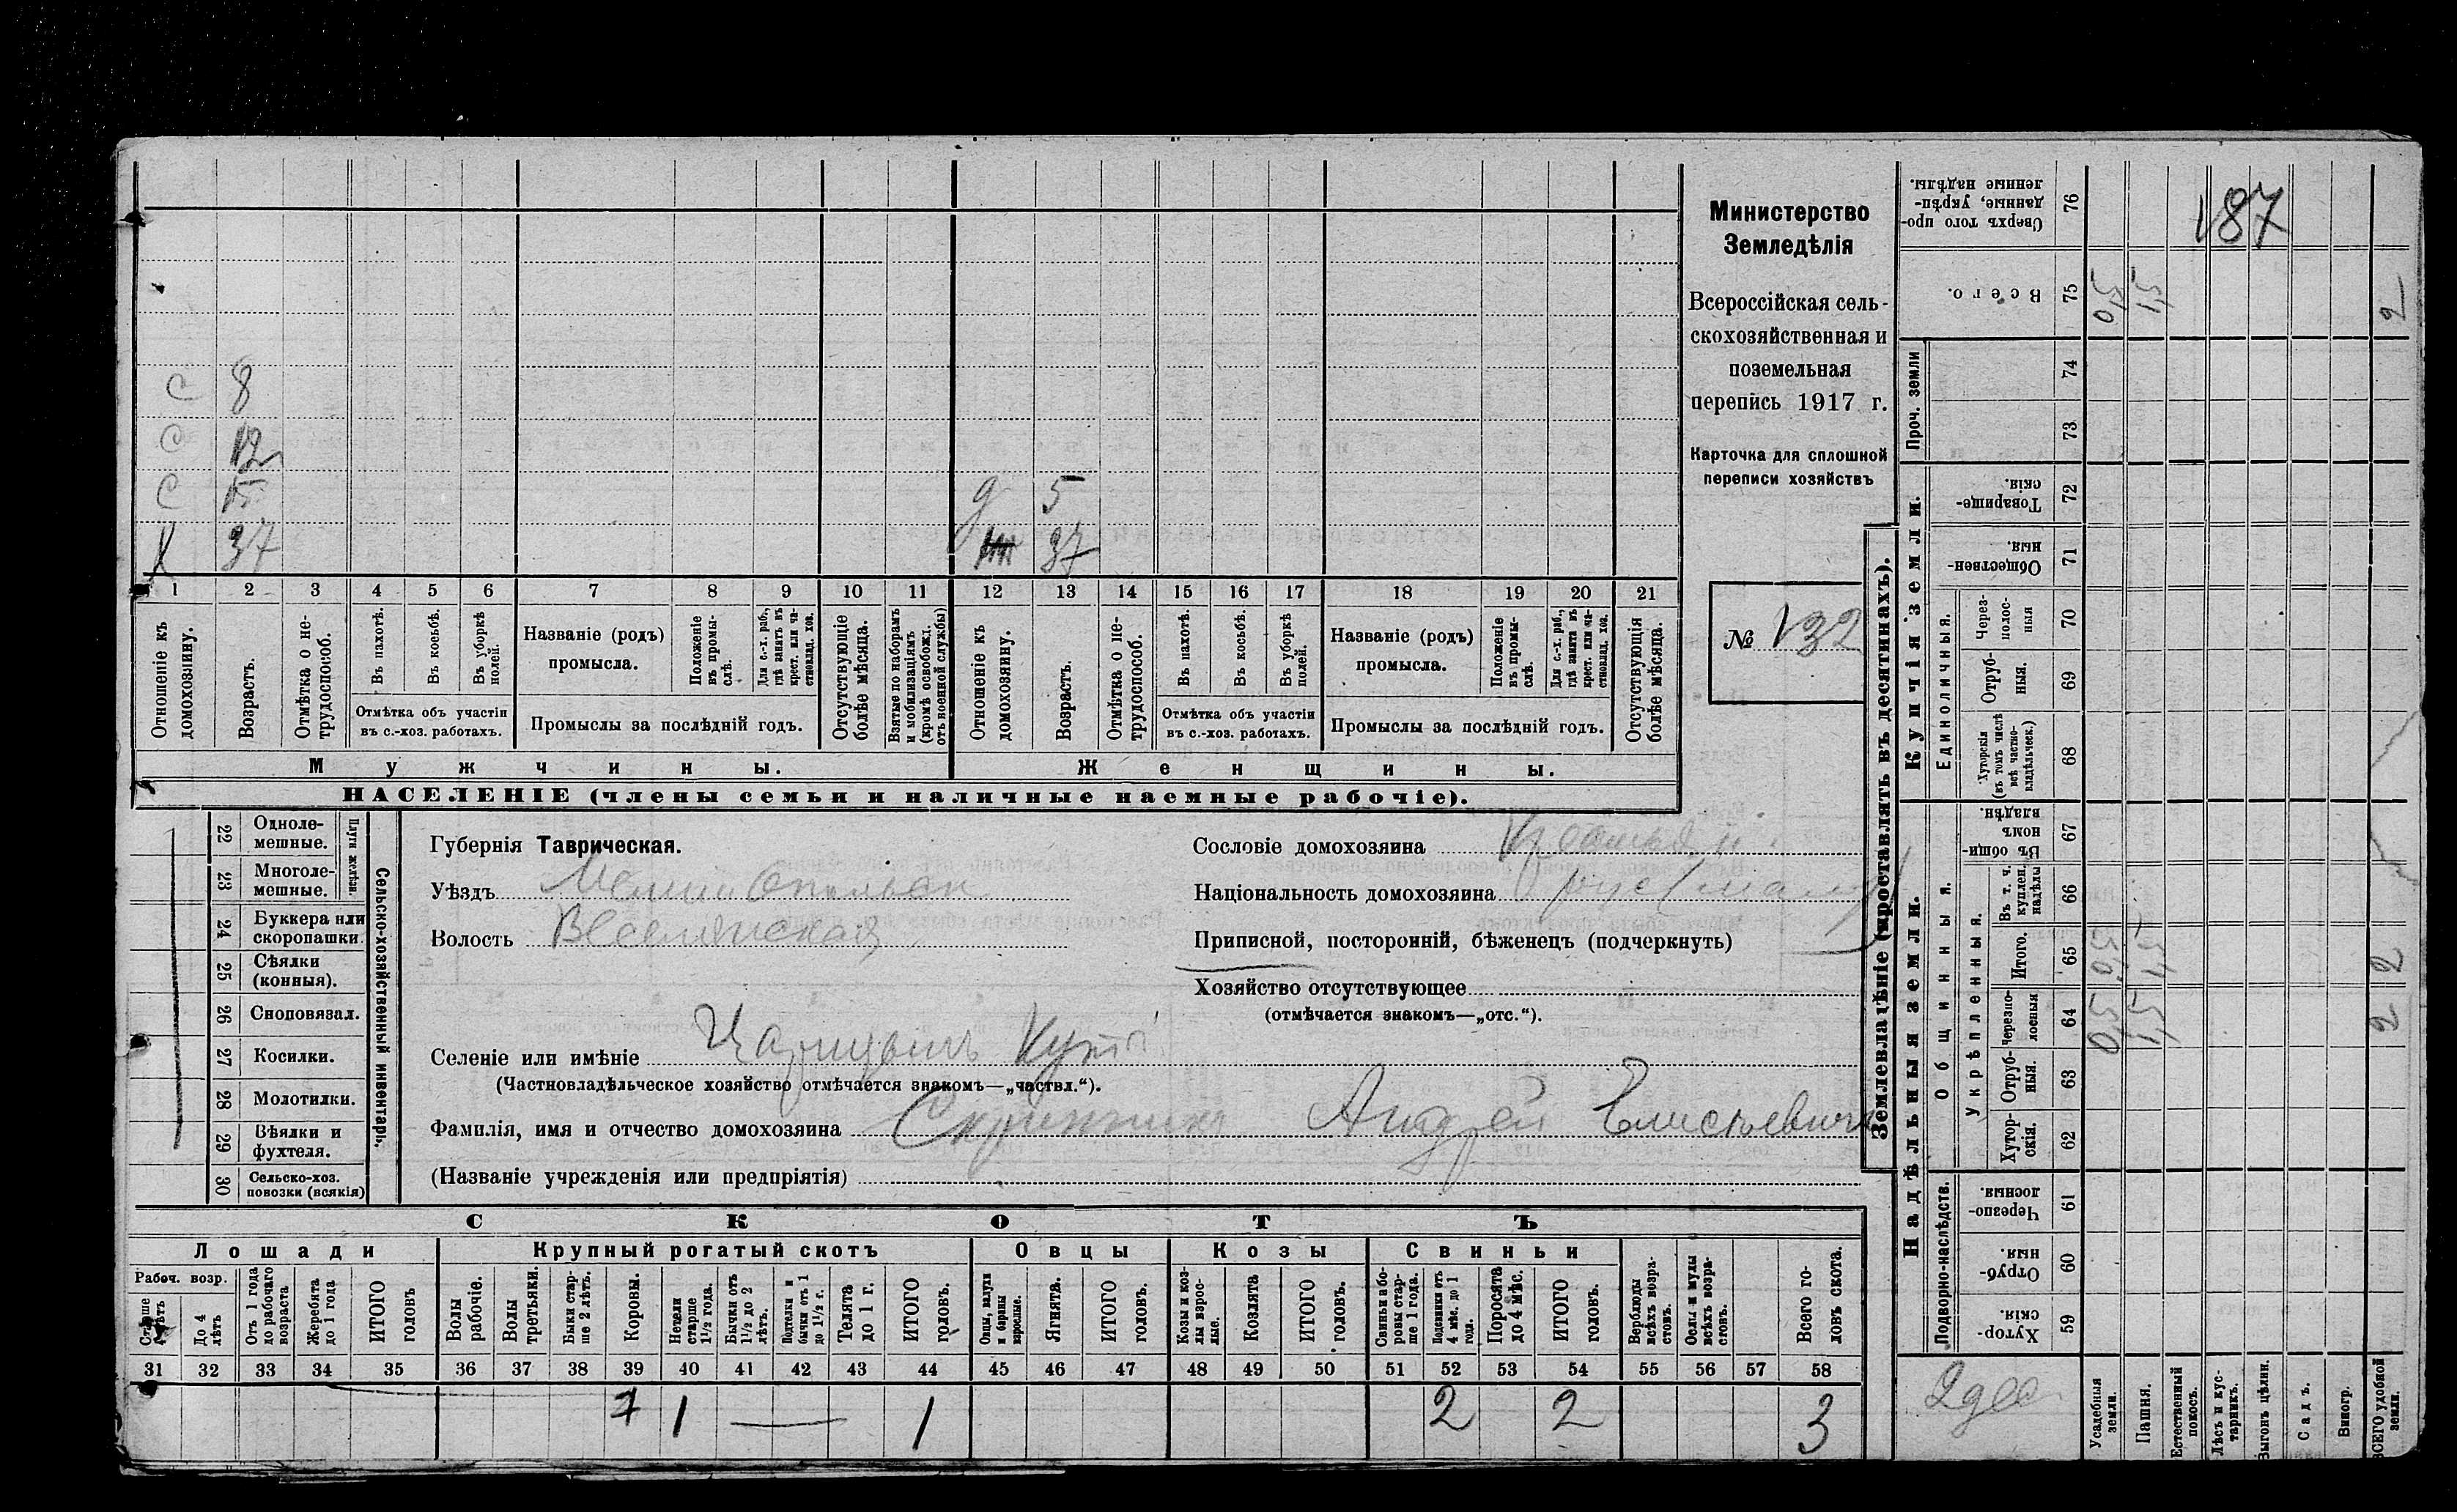 Министерство
Земледѣлія
Всероссійская сель-
скохозяйственная и
поземельная
перепись 1917 г.
Карточка для сплошной
переписи хозяйствъ
№ 132
187
С 8
С 12
С 15
Х 37
д 5
37
1 2 3 4 5 6 7 8 9 10 11 12 13 14 15 16 17 18 19 20 21
Отношеніе къ домохозяину.
Возрастъ.
Отмѣтка о не-трудоспособ.
Въ пахотѣ.
Въ косьбѣ.
Въ уборкѣ полей.
Отмѣтка объ участіи
въ с.-хоз. работахъ.
Названіе (родъ)
промысла.
Положеніе въ промы-слѣ.
Для с.-х. раб., гдѣ занятъ въ крест. или ча-стновлад. хоз.
Промыслы за послѣдній годъ.
Отсутствующіе болѣе мѣсяца.
Взятые по наборамъ и мобилизаціямъ (кромѣ освобожд. отъ военной службы)
Отношеніе къ домохозяину.
Возрастъ.
Отмѣтка о не-трудоспособ.
Въ пахотѣ.
Въ косьбѣ.
Въ уборкѣ полей.
Отмѣтка объ участіи
въ с.-хоз. работахъ.
Названіе (родъ)
промысла.
Положеніе въ промы-слѣ.
Для с.-х. раб., гдѣ занята въ крест. или ча-стновлад. хоз.
Промыслы за послѣдній годъ.
Отсутствующія болѣе мѣсяца.
Мужчины.
Женщины.
НАСЕЛЕНІЕ (члены семьи и наличные наемные рабочіе).
Сельско-хозяйственный инвентарь.
Плуги желѣзн.
22 Одноле-мешные.
23 Многоле-мешные.
24 Буккера или скоропашки
25 Сѣялки (конныя).
26 Сноповязал.
27 Косилки.
28 Молотилки.
29 Вѣялки и фухтеля.
30 Сельско-хоз. повозки (всякія)
Губернія Таврическая.
Уѣздъ
Волость Веселянская
Селеніе или имѣніе Царицынъ Кутъ
(Частновладѣльческое хозяйство отмѣчается знакомъ—„частвл.“).
Фамилія, имя и отчество домохозяина Андрей Елисѣевичъ
(Названіе учрежденія или предпріятія)
Сословіе домохозяина
Національность домохозяина
Приписной, посторонній, бѣженецъ (подчеркнуть)
Хозяйство отсутствующее
(отмѣчается знакомъ—„отс.“).
СКОТЪ
Лошади
Крупный рогатый скотъ
Овцы
Козы
Свиньи
Рабоч. возр.
Старше 4 лѣтъ
До 4 лѣтъ
Отъ 1 года до рабочаго возраста
Жеребята до 1 года
ИТОГО головъ
Волы рабочіе.
Волы третьяки.
Быки стар-ше 2 лѣтъ.
Коровы.
Нетели старше 1½ года.
Бычки отъ 1½ до 2 лѣтъ.
Подтелки и бычки отъ 1 до 1½ г.
Телята до 1 г.
ИТОГО головъ.
Овцы, валухи и бараны взрослые.
Ягнята.
ИТОГО головъ.
Козы и коз-лы взрос-лые.
Козлята
ИТОГО головъ.
Свиньи и бо-ровы стар-ше 1 года.
Подсвинки отъ 4 мѣс. до 1 года.
Поросята до 4 мѣс.
ИТОГО головъ.
Верблюды всѣхъ возра-стовъ.
Ослы и мулы всѣхъ возра-стовъ.
Всего го-ловъ скота.
31 32 33 34 35 36 37 38 39 40 41 42 43 44 45 46 47 48 49 50 51 52 53 54 55 56 57 58
1 1 2 2 3
Землевладѣніе (проставлять въ десятинахъ).
Надѣльныя земли.
Купчія земли.
Проч. земли
Подворно-наслѣдств.
Общинныя.
Укрѣпленныя.
Единоличныя.
76 Сверхъ того про-данные, укрѣп-ленные надѣлы.
75 Всего.
74
73
72 Товарище-скія.
71 Обществен-ныя.
70 Через-полос-ныя
69 Отруб-ныя.
68 Хуторскія (въ томъ числѣ всѣ частно-владѣльческ.)
67 Въ общи-номъ владѣн.
66 Въ т. ч. куплен. надѣлы
65 Итого.
64 Черезпо-лосныя
63 Отруб-ныя.
62 Хутор-скія.
61 Черезпо-лосныя.
60 Отруб-ныя.
59 Хутор-скія
Усадебныя земли.
Пашня.
Естественный покосъ.
Лѣсъ и кус-тарникъ.
Выгонъ цѣлин.
Садъ.
Виногр.
ВСЕГО удобной земли.
2 дес.
2
2
2